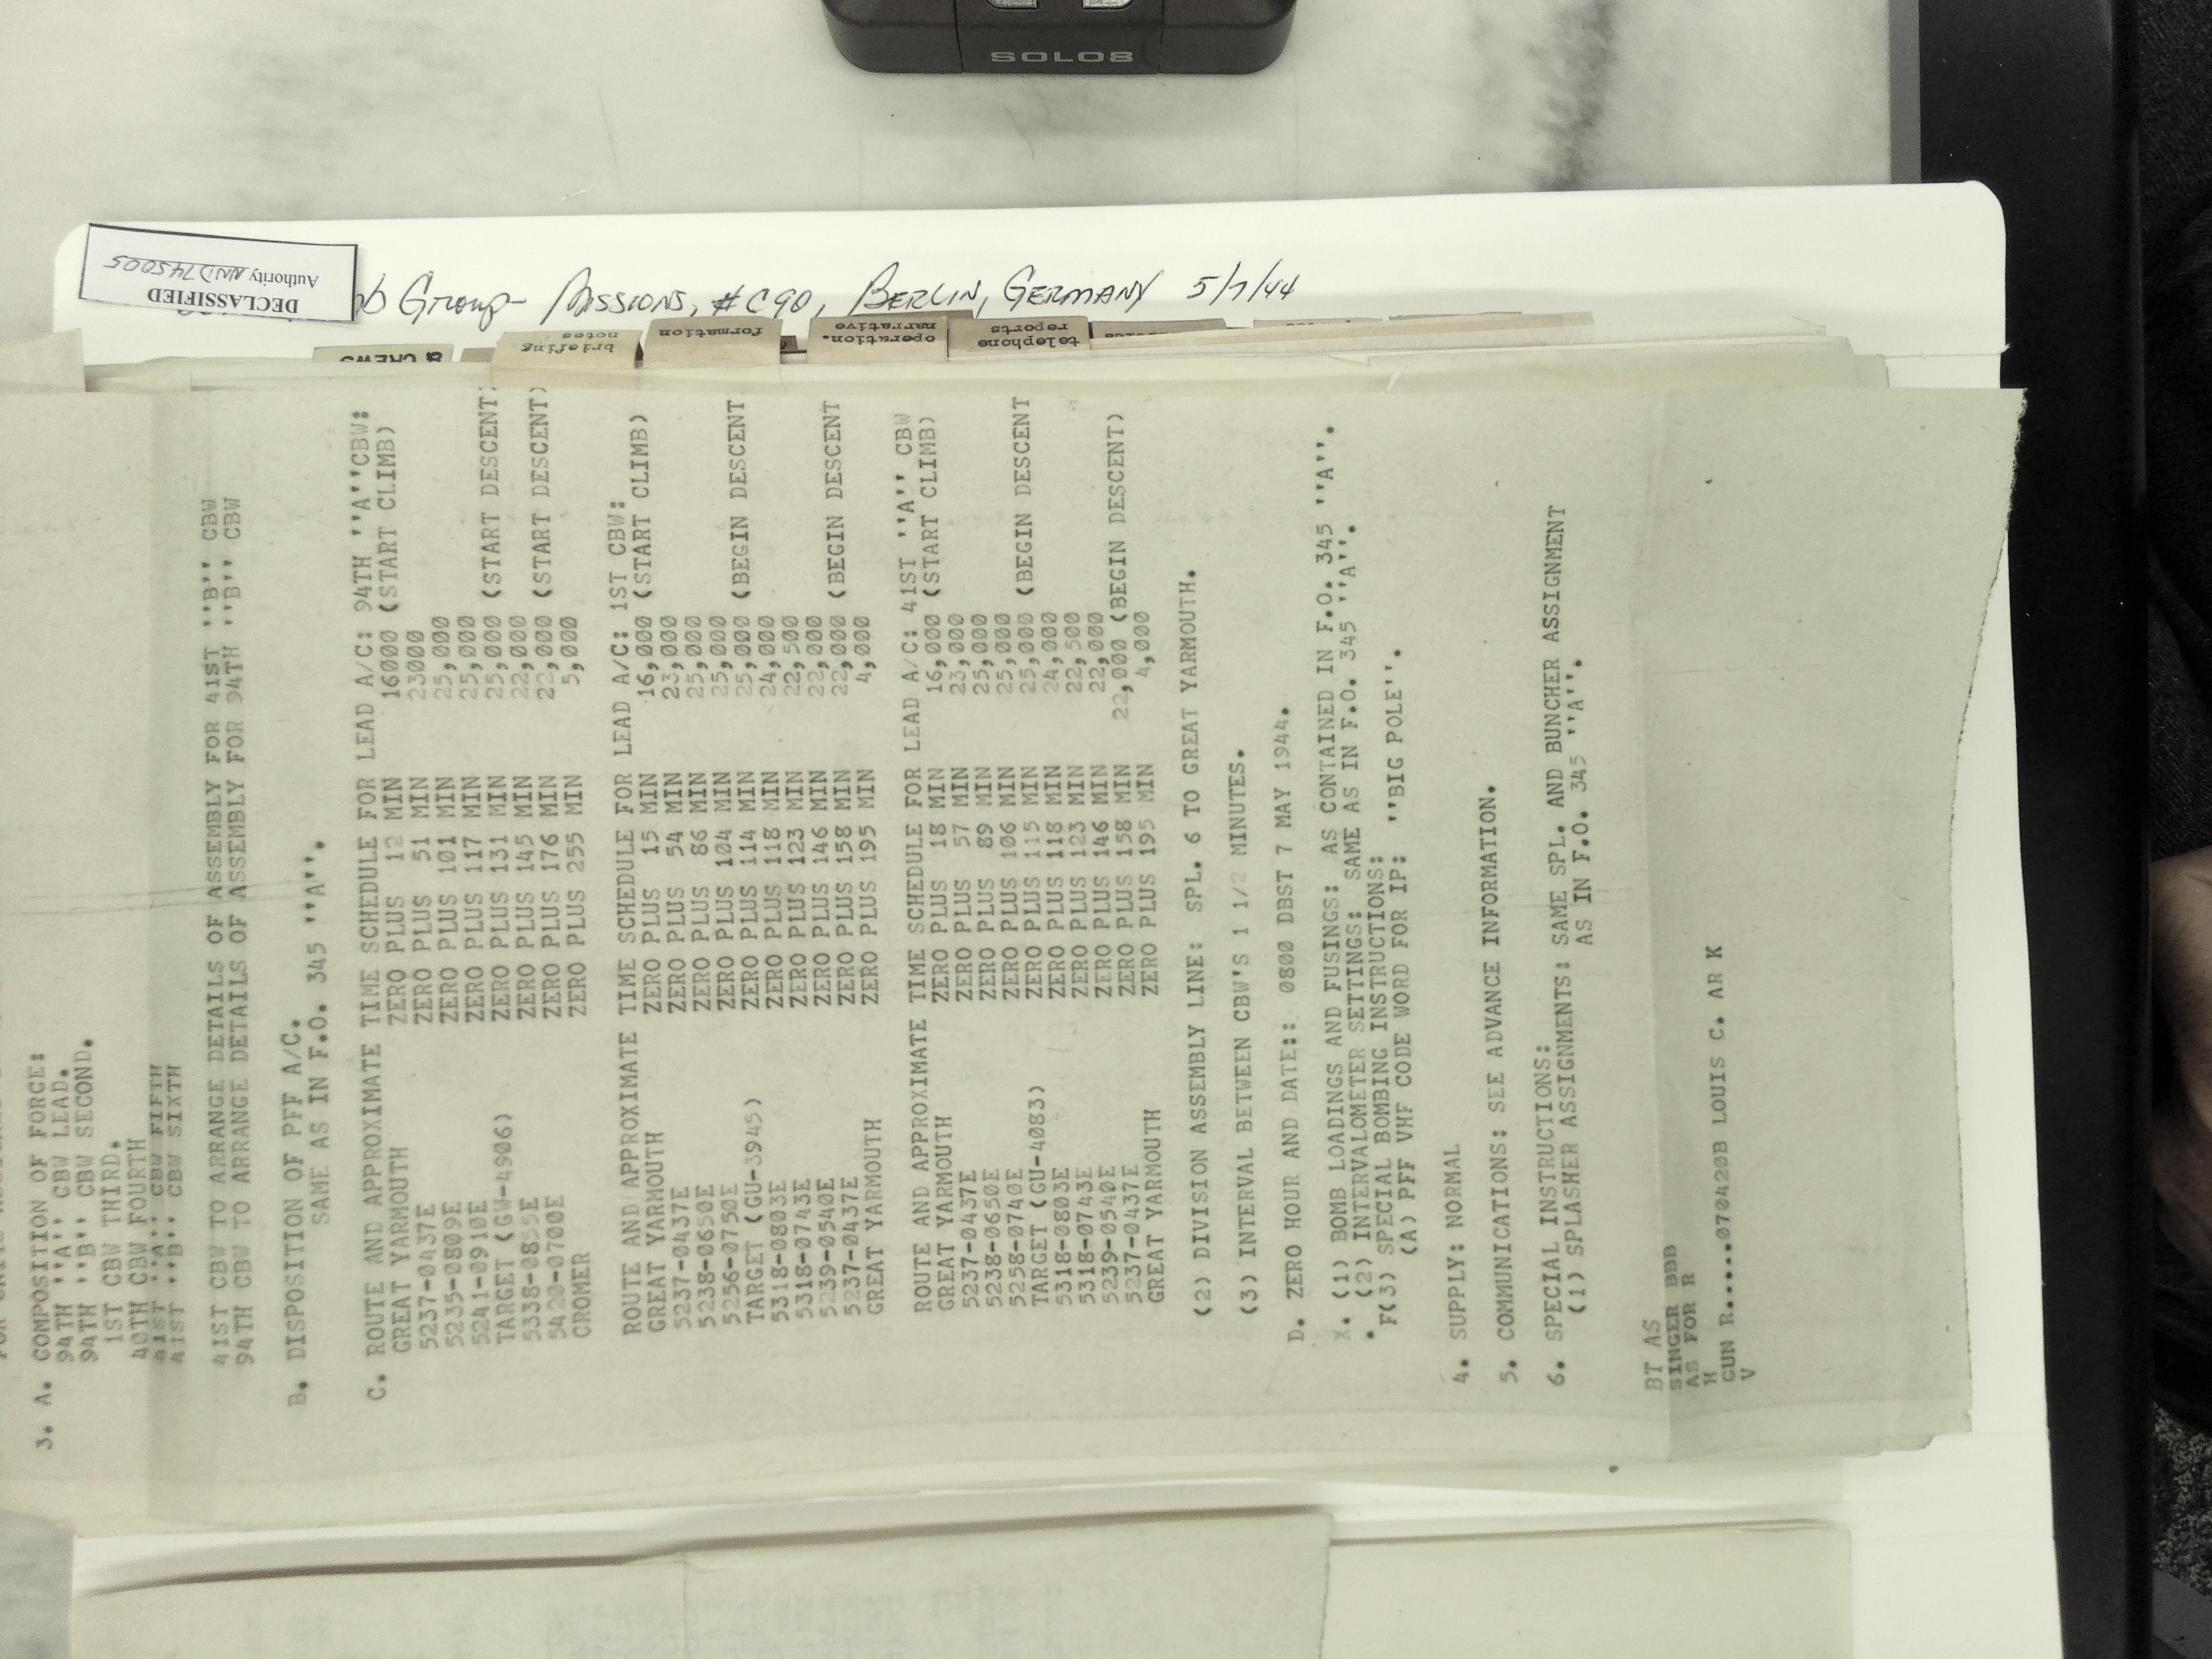 SOLO8
DECLASSIFIED
Authority NND745005
Group- Missions, #C90, Berlin, Germany 5/7/44
& CREWS
briefing
notes
formation
operation.
narrative
telephone
reports
3. A. COMPOSITION OF FORCE:
94TH ''A'' CBW LEAD.
94TH ''B'' CBW SECOND.
1ST CBW THIRD.
40TH CBW FOURTH
41ST ''A'' CBW FIFTH
41ST ''B'' CBW SIXTH
41ST CBW TO ARRANGE DETAILS OF ASSEMBLY FOR 41ST ''B'' CBW
94TH CBW TO ARRANGE DETAILS OF ASSEMBLY FOR 94TH ''B'' CBW
B. DISPOSITION OF PFF A/C.
SAME AS IN F.O. 345 ''A''.
C. ROUTE AND APPROXIMATE TIME SCHEDULE FOR LEAD A/C: 94TH ''A''CBW:
GREAT YARMOUTH ZERO PLUS 12 MIN 16000 (START CLIMB)
5237-0437E ZERO PLUS 51 MIN 23000
5235-0809E ZERO PLUS 101 MIN 25,000
5241-0910E ZERO PLUS 117 MIN 25,000
TARGET (GW-4906) ZERO PLUS 131 MIN 25,000 (START DESCENT)
5338-0855E ZERO PLUS 145 MIN 22,000
5420-0700E ZERO PLUS 176 MIN 22,000 (START DESCENT)
CROMER ZERO PLUS 255 MIN 5,000
ROUTE AND APPROXIMATE TIME SCHEDULE FOR LEAD A/C: 1ST CBW:
GREAT YARMOUTH ZERO PLUS 15 MIN 16,000 (START CLIMB)
5237-0437E ZERO PLUS 54 MIN 23,000
5238-0650E ZERO PLUS 86 MIN 25,000
5256-0750E ZERO PLUS 104 MIN 25,000
TARGET (GU-3945) ZERO PLUS 114 MIN 25,000 (BEGIN DESCENT
5318-0803E ZERO PLUS 118 MIN 24,000
5318-0743E ZERO PLUS 123 MIN 22,500
5239-0540E ZERO PLUS 146 MIN 22,000
5237-0437E ZERO PLUS 158 MIN 22,000 (BEGIN DESCENT
GREAT YARMOUTH ZERO PLUS 195 MIN 4,000
ROUTE AND APPROXIMATE TIME SCHEDULE FOR LEAD A/C: 41ST ''A'' CBW
GREAT YARMOUTH ZERO PLUS 18 MIN 16,000 (START CLIMB)
5237-0437E ZERO PLUS 57 MIN 23,000
5238-0650E ZERO PLUS 89 MIN 25,000
5258-0740E ZERO PLUS 106 MIN 25,000
TARGET (GU-4083) ZERO PLUS 115 MIN 25,000 (BEGIN DESCENT
5318-0803E ZERO PLUS 118 MIN 24,000
5318-0743E ZERO PLUS 123 MIN 22,500
5239-0540E ZERO PLUS 146 MIN 22,000
5237-0437E ZERO PLUS 158 MIN 22,000 (BEGIN DESCENT)
GREAT YARMOUTH ZERO PLUS 195 MIN 4,000
(2) DIVISION ASSEMBLY LINE: SPL. 6 TO GREAT YARMOUTH.
(3) INTERVAL BETWEEN CBW'S 1 1/2 MINUTES.
D. ZERO HOUR AND DATE:: 0800 DBST 7 MAY 1944.
X. (1) BOMB LOADINGS AND FUSINGS: AS CONTAINED IN F.O. 345 ''A''.
. (2) INTERVALOMETER SETTINGS: SAME AS IN F.O. 345 ''A''.
F(3) SPECIAL BOMBING INSTRUCTIONS:
(A) PFF VHF CODE WORD FOR IP: ''BIG POLE''.
4. SUPPLY: NORMAL
5. COMMUNICATIONS: SEE ADVANCE INFORMATION.
6. SPECIAL INSTRUCTIONS:
(1) SPLASHER ASSIGNMENTS: SAME SPL. AND BUNCHER ASSIGNMENT
AS IN F.O. 345 ''A''.
BT AS
SINGER BBB
AS FOR R
H
GUN R.....070420B LOUIS C. AR K
V